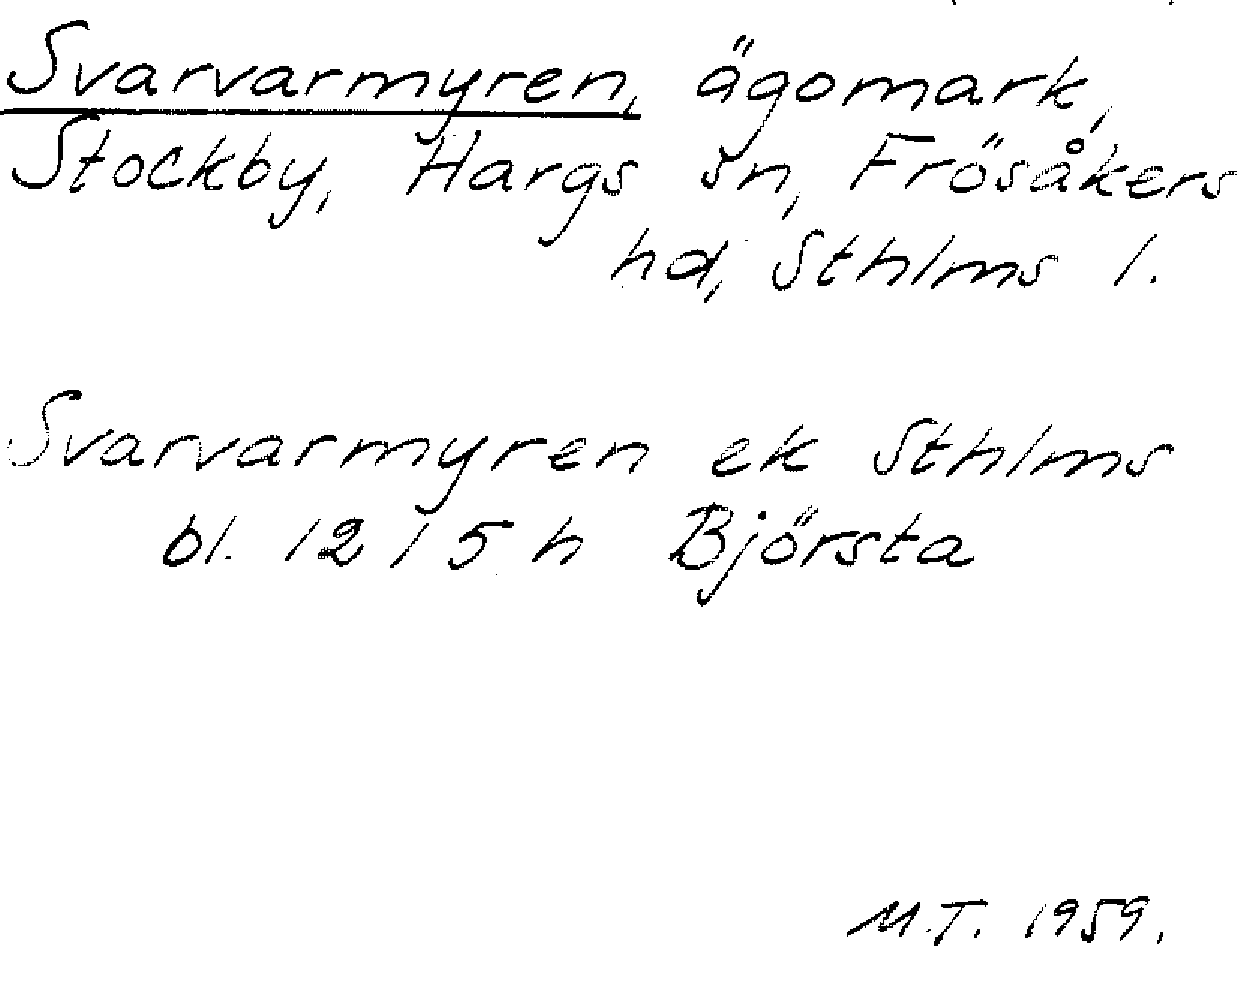 Svarvarmyren, ägomark,
Stockby, Hargs sn, Frösåkers
hd, Sthlms l.
Svarvarmyren ek Sthlms
bl. 12 I 5 h Björsta
M.T. 1959.